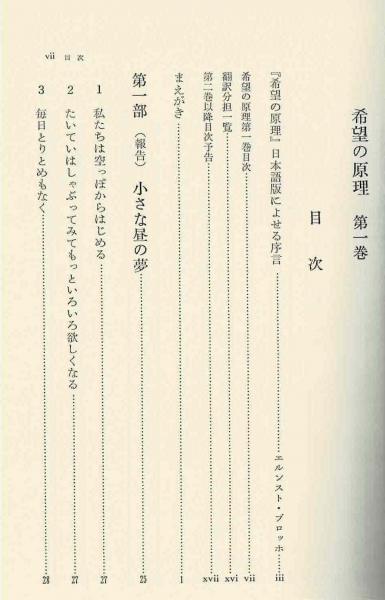 希望の原理 第一巻
目次
『希望の原理』日本語版によせる序言……エルンスト・ブロッホ……iii
希望の原理第一巻目次……vii
翻訳分担一覧……xvi
第二巻以降目次予告……xvii
まえがき……1
第一部 (報告) 小さな昼の夢……25
1 私たちは空っぽからはじめる……27
2 たいていはしゃぶってみてもっといろいろ欲しくなる……27
3 毎日とりとめもなく……28
vii 目次